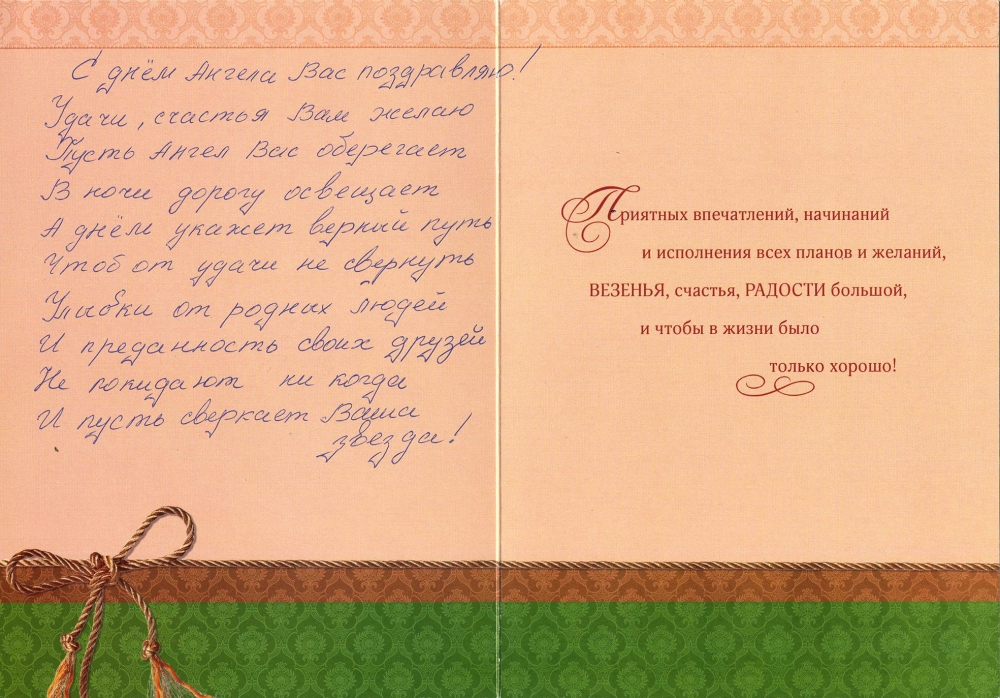 С днём Ангела Вас поздравляю!
Удачи, счастья Вам желаю
Пусть Ангел Вас оберегает
В ночи дорогу освещает
А днём укажет верный путь
Чтоб от удачи не свернуть
Улыбки от родных людей
И преданность своих друзей
Не покидают ни когда
И пусть сверкает Ваша
звезда!
Приятных впечатлений, начинаний
и исполнения всех планов и желаний,
ВЕЗЕНЬЯ, счастья, РАДОСТИ большой,
и чтобы в жизни было
только хорошо!